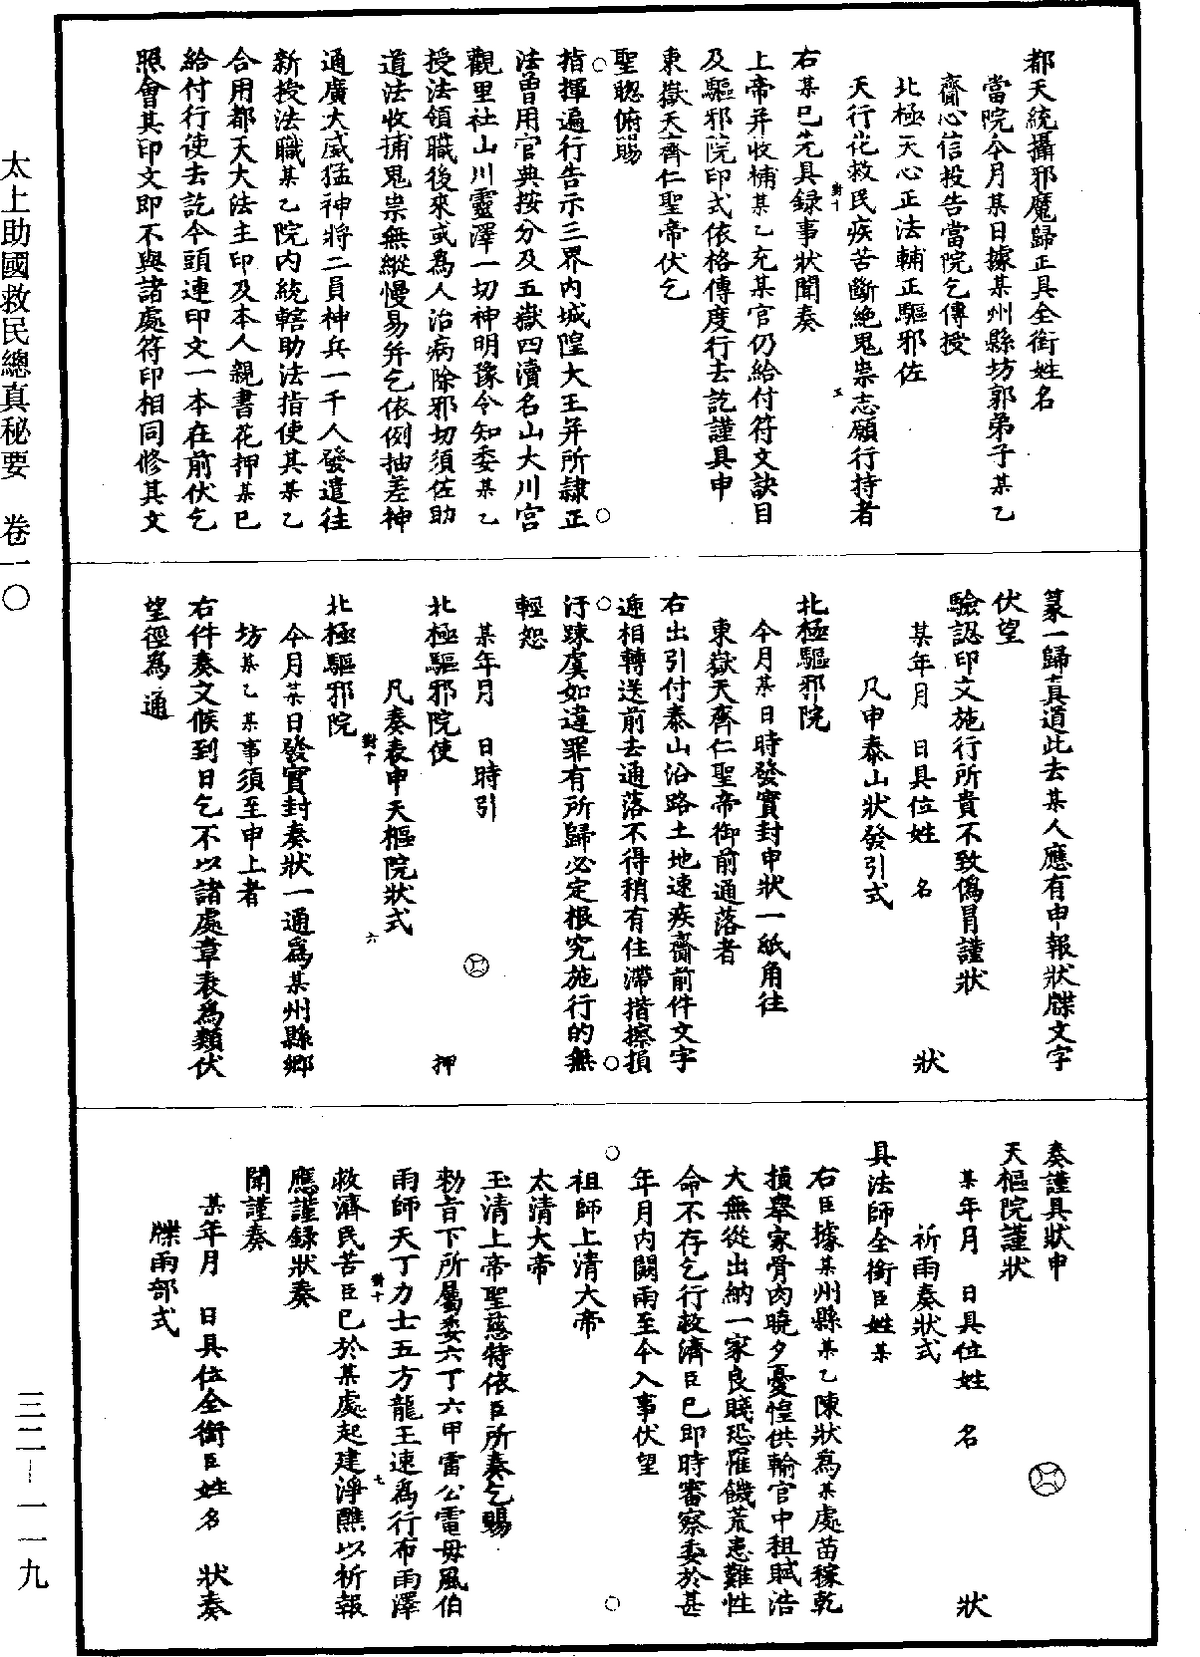 都天統攝邪魔歸正具全銜姓名
當院今月某日據某州縣坊郭弟子某乙
齎心信投告當院乞傳授
北極天心正法輔正驅邪佐
天行化救民疾苦斷絕鬼祟志願行持者
對十
五
右某已先具錄事狀聞奏
上帝并收補某乙充某官仍給付符文訣目
及驅邪院印式依格傳度行去訖謹具申
東嶽天齊仁聖帝伏乞
聖聰俯賜
指揮遍行告示三界內城隍大王并所隸正
法曾用官典按分及五嶽四瀆名山大川宮
觀里社山川靈澤一切神明豫令知委某乙
授法領職後來或為人治病除邪切須佐助
道法收捕鬼祟無縱慢易并乞依例抽差神
通廣大威猛神將二員神兵一千人發遣往
新授法職某乙院內統轄助法指使其某乙
合用都天大法主印及本人親書花押某已
給付行使去訖今頭連印文一本在前伏乞
照會其印文即不與諸處符印相同修其文
篆一歸真道此去某人應有申報狀牒文字
伏望
驗認印文施行所貴不致偽冒謹狀
某年月　日具位姓　名　狀
凡申泰山狀發引式
北極驅邪院
今月某日時發實封申狀一紙角往
東嶽天齊仁聖帝御前通落者
右出引付泰山沿路土地速疾齎前件文字
遞相轉送前去通落不得稍有住滯揩擦損
汙踈虞如違罪有所歸必定根究施行的無
輕恕
某年月　日時引
北極驅邪院使　押
凡奏表申天樞院狀式
對十
六
北極驅邪院
今月某日發實封奏狀一通為某州縣鄉
坊某乙某事須至申上者
右件奏文候到日乞不以諸處章表為類伏
望徑為通
奏謹具狀申
天樞院謹狀
某年月　日具位姓　名　狀
祈雨奏狀式
具法師全銜臣姓某
右臣據某州縣某乙陳狀為某處苗稼乾
損舉家骨肉曉夕憂惶供輸官中租賦浩
大無從出納一家良賤恐罹饑荒恚難性
命不存乞行救濟臣已即時審察委於甚
年月內闕雨至今入事伏望
祖師上清大帝
太清大帝
玉清上帝聖慈特依臣所奏乞賜
勑旨下所屬委六丁六甲雷公電母風伯
雨師天丁力士五方龍王速為行布雨澤
對十
七
救濟民苦臣已於某處起建淨醮以祈報
應謹錄狀奏
聞謹奏
某年月　日具位全銜臣姓名　狀奏
牒雨部式
太上助國救民總真秘要　卷一〇
三二—一一九